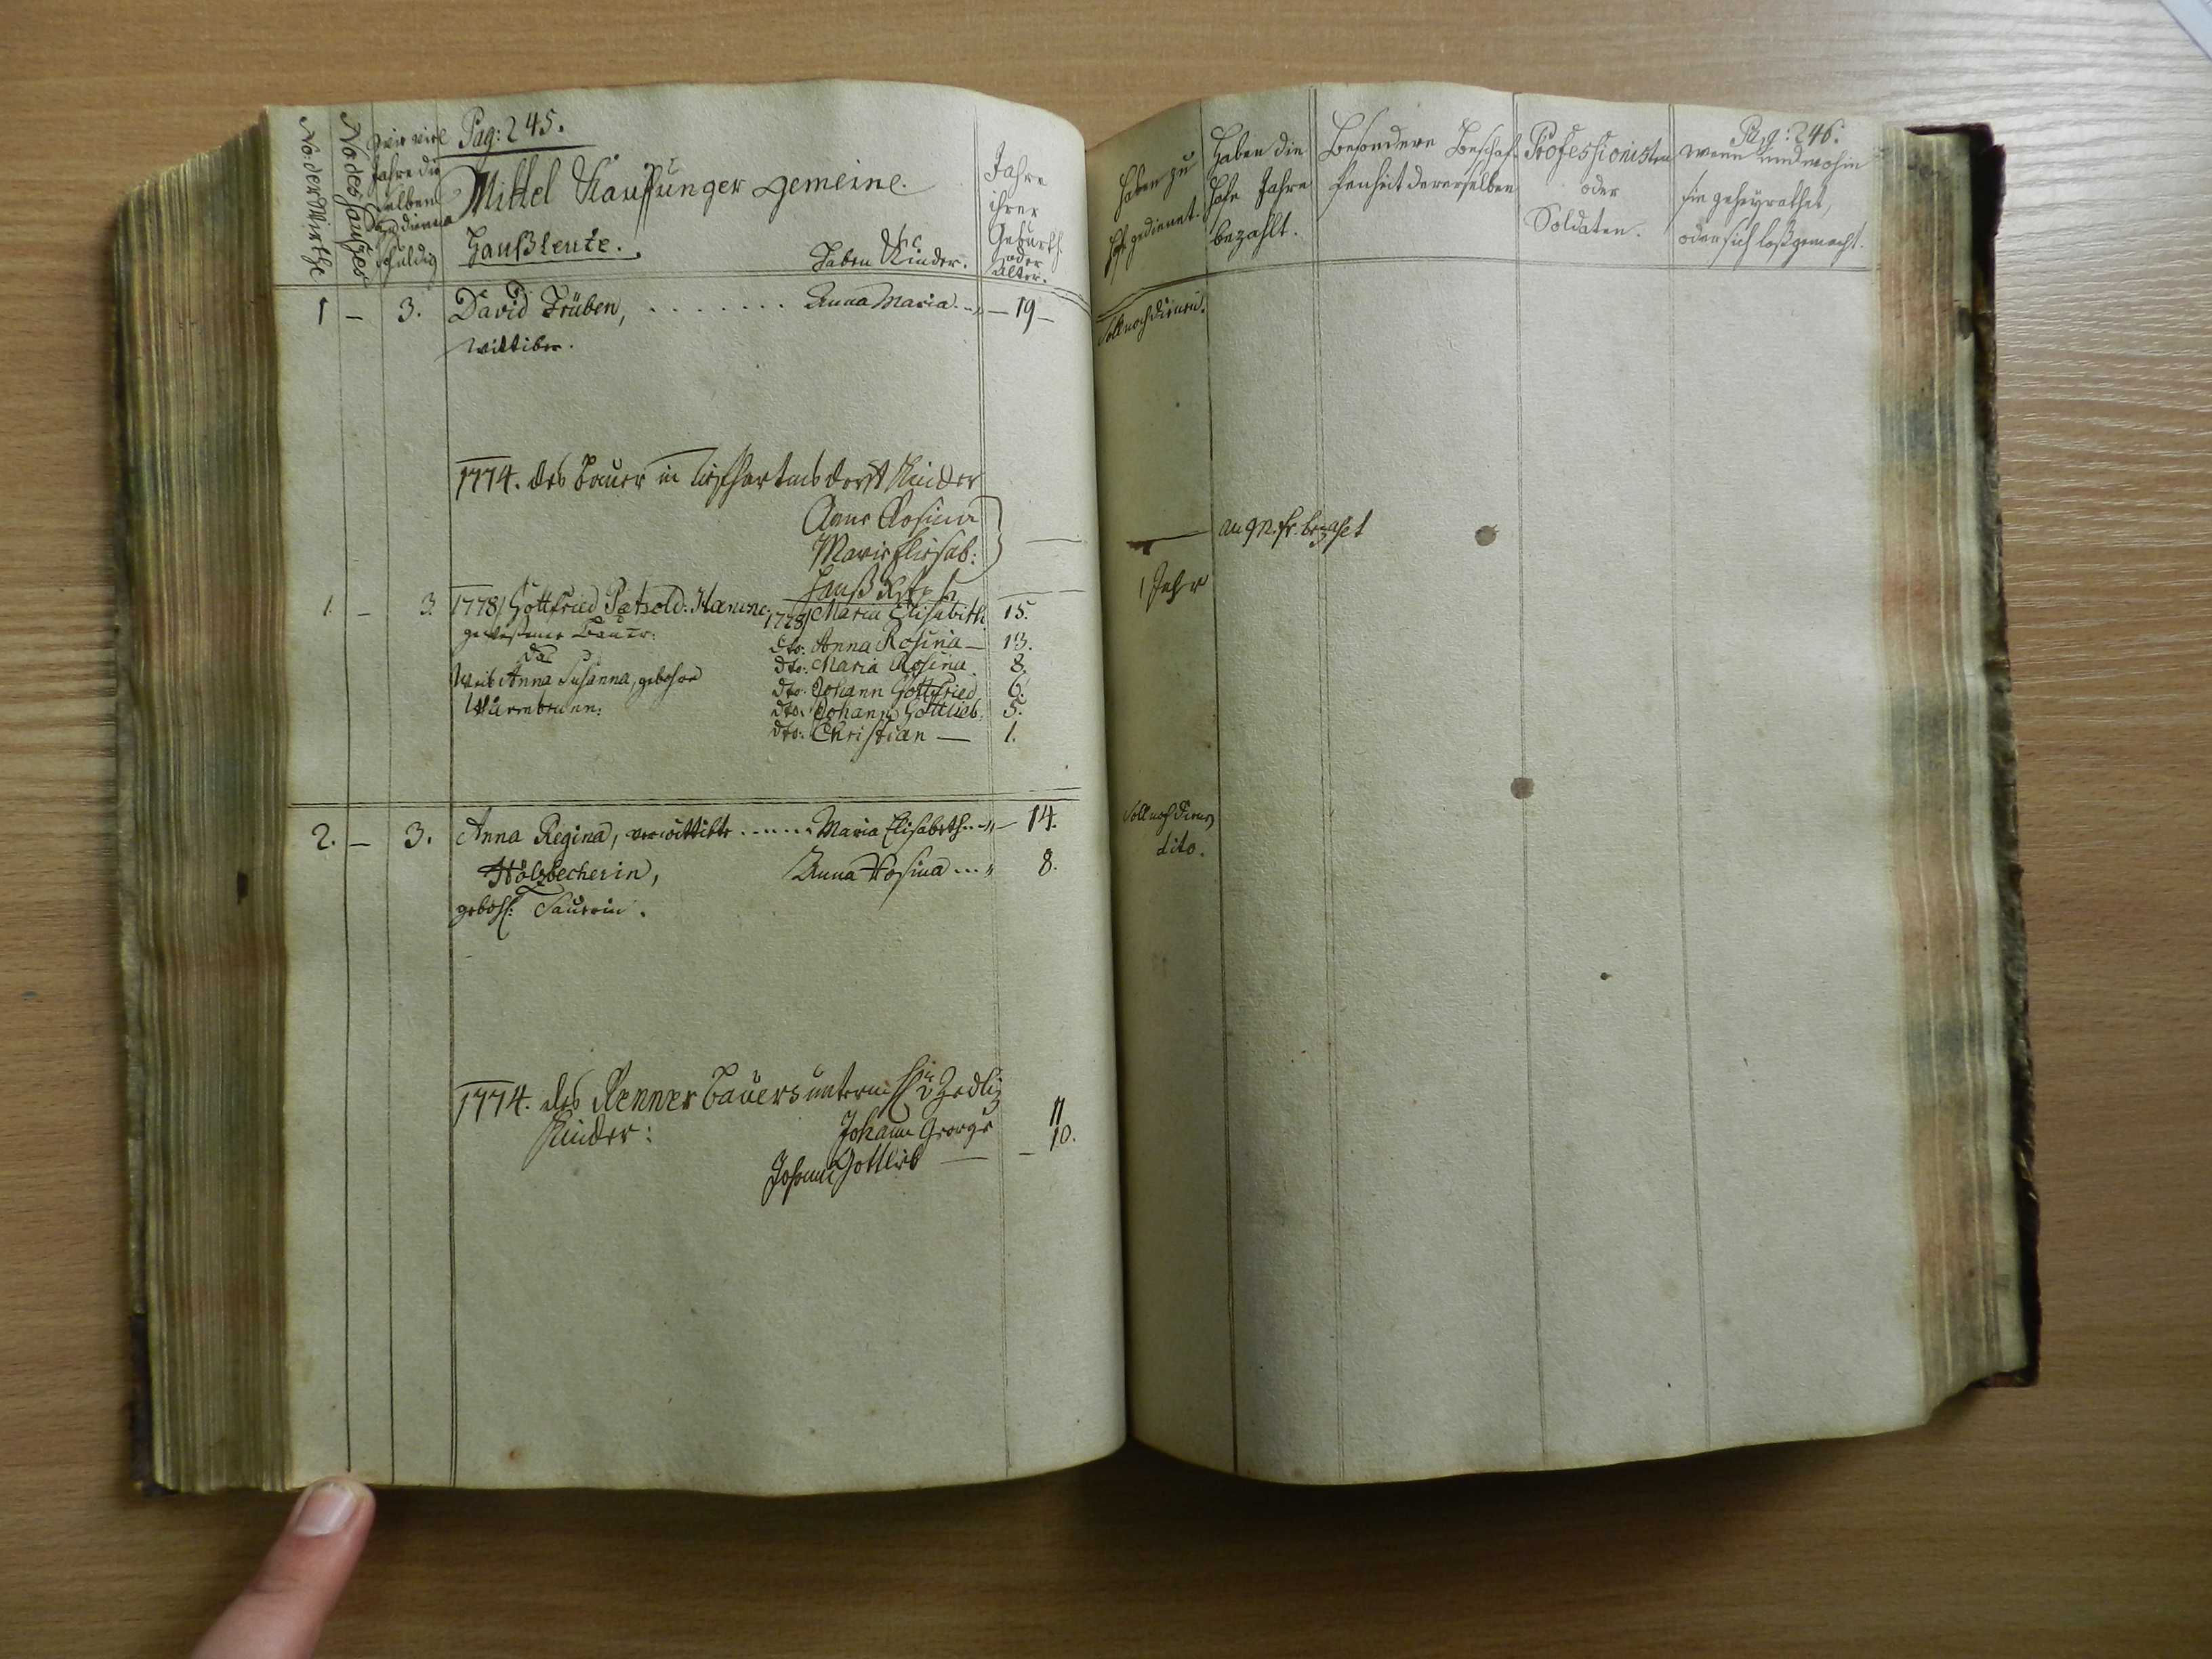 Pag: 245.
No: der Wirthe
No des Hauses
Wie viel Jahre die selben zu dienen schuldig
Mittel Kauffunger Gemeine.
Haußleute.
haben Kinder.
Jahre ihrer Geburth oder Alter.
1 – 3. David Trüben, . . . . . . . . Anna Maria . . — 19 —
Wittiber.
1774. des Bauer in Kinder
Anna Rosina
Maria Elisab:
1. – 3. 1778/ Gottfried Pätzold: 1778/ Maria Elisabeth 15.
gewesener Bauer: dto: Anna Rosina — 13.
das dto: Maria Rosina 8.
Weib Anna Susanna, gebohrne dto: Johann Gottfried 6.
dto: Johann Gottlieb. 5.
dto: Christian — 1.
2. – 3. Anna Regina, verwittibte . . . . . . Maria Elisabeth . . — 14.
Hölzbecherin, Anna Rosina . . . 8.
gebohr: Taurrin.
1774. des Renner Bauers unterm H: v Zedliz
Kinder: Johann George 11
Johann Gottlieb — – 10.
Pag: 246.
haben zu Hofe gedienet.
haben die Hofe Jahre bezahlt.
Besondere Beschaffenheit dererselben
Professionisten oder Soldaten.
wenn und wohin sie geheyrathet, oder sich loßgemacht.
Soll noch dienen.
bezahlt
1 Jahr
Soll noch dienen
dito.